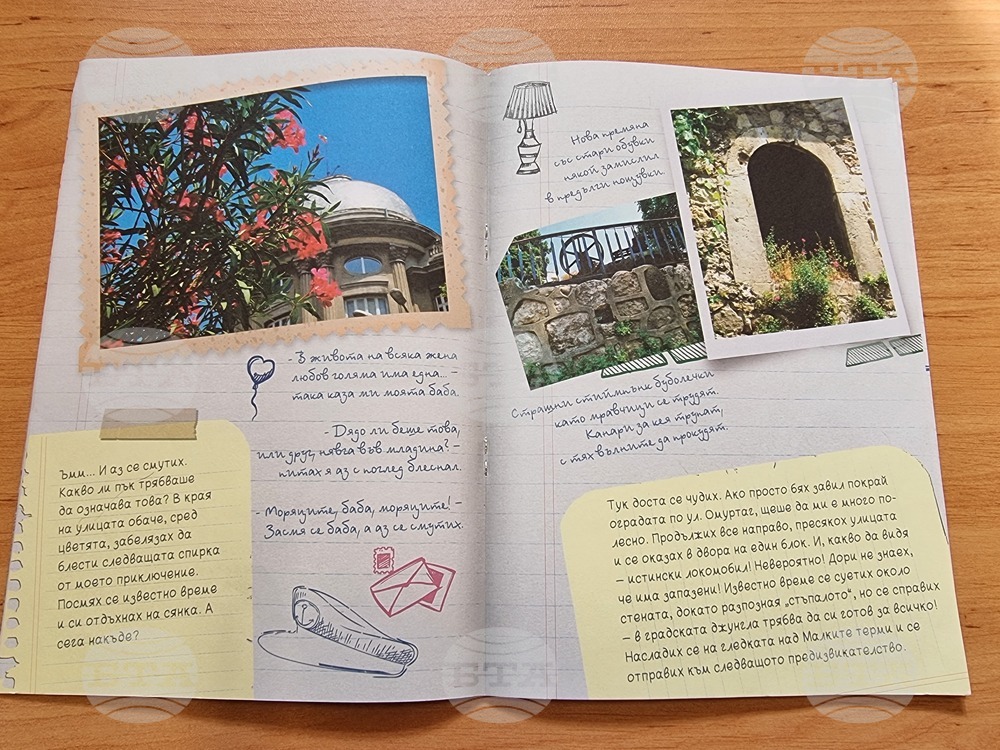 - В живота на всяка жена
любов голяма има една... -
така каза ми моята баба.
- Дядо ли беше това,
или друг, нявга във младина? -
питах я аз с поглед блеснал.
- Моряците, баба, моряците! -
Засмя се баба, а аз се смутих.
Ъмм... И аз се смутих.
Какво ли пък трябваше
да означава това? В края
на улицата обаче, сред
цветята, забелязах да
блести следващата спирка
от моето приключение.
Посмях се известно време
и си отдъхнах на сянка. А
сега накъде?
Нова премяна
със стари обувки
някой замислил
в предълги нощувки.
Страшни стиймпънк буболечки
като мравчици се трудят.
Канари за кея трупат,
с тях вълните да прокудят.
Тук доста се чудих. Ако просто бях завил покрай
оградата по ул. Омуртаг, щеше да ми е много по-
лесно. Продължих все направо, пресякох улицата
и се оказах в двора на един блок. И, какво да видя
– истински локомобил! Невероятно! Дори не знаех,
че има запазени! Известно време се суетих около
стената, докато разпозная „стъпалото“, но се справих
– в градската джунгла трябва да си готов за всичко!
Насладих се на гледката над Малките терми и се
отправих към следващото предизвикателство.
БТА